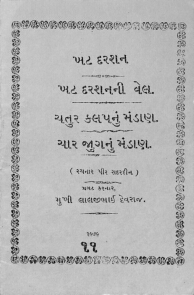 ખટ દરશન
ખટ દરશનની વેલ.
ચતુર કલપનું મંડાણ.
ચાર જુગનું મંડાણ.
( રચનાર પીર સદરદીન )
પ્રગટ કરનાર,
મુખી લાલજીભાઈ દેવરાજ.
૧૧